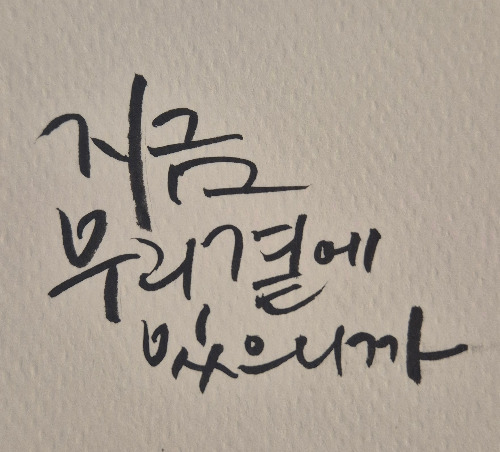 지금
우리 곁에
있으니까